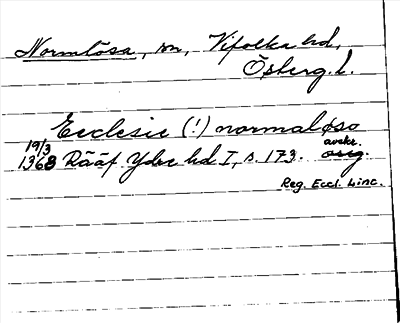 Normlösa, sn, Vifolka hd,
Österg. l.
Ecclesie (!) normaløso
19/3 avskr.
1368 Rääf Ydre hd I, s. 173. orig.
Reg. Eccl. Linc.